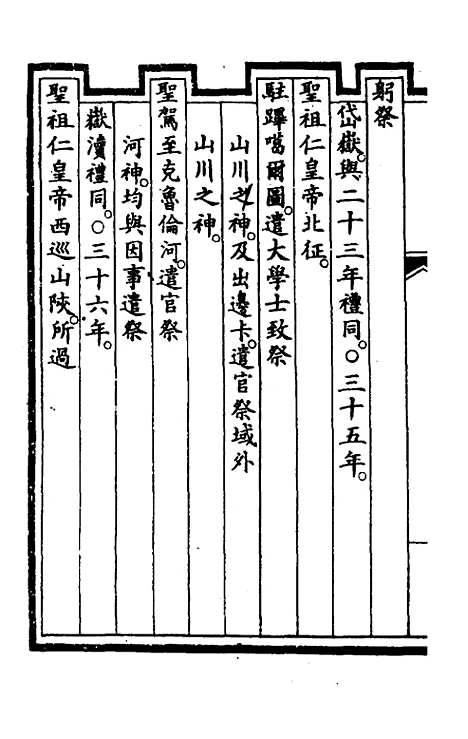 躬祭
岱嶽。與二十三年禮同。○三十五年。
聖祖仁皇帝北征。
駐蹕噶爾圖。遣大學士致祭
山川之神。及出邊卡。遣官祭域外
山川之神。
聖駕至克魯倫河。遣官祭
河神。均與因事遣祭
嶽瀆禮同。○三十六年。
聖祖仁皇帝西巡山陝。所過